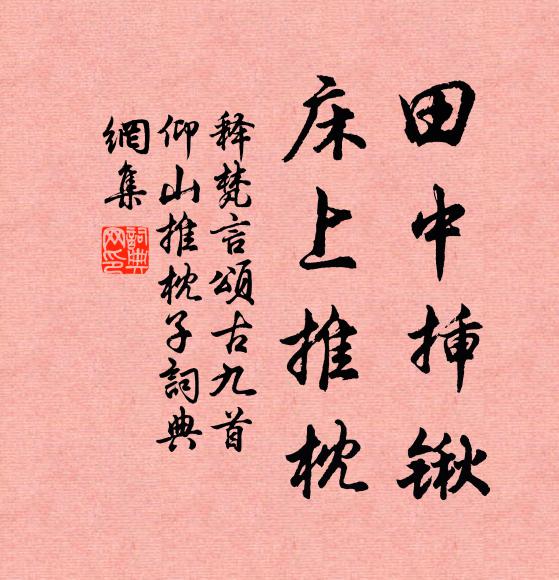 田中挿锹
床上推枕
释梵言頌古九首
仰山推枕子詞典
網集
詞典網印